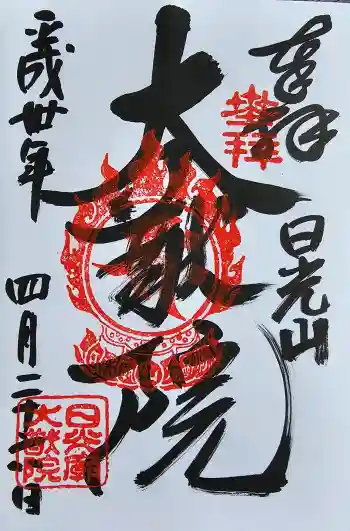 奉拝
日光山
大猷院
平成卅年
四月二十六日
登拝
日光廟
大猷院